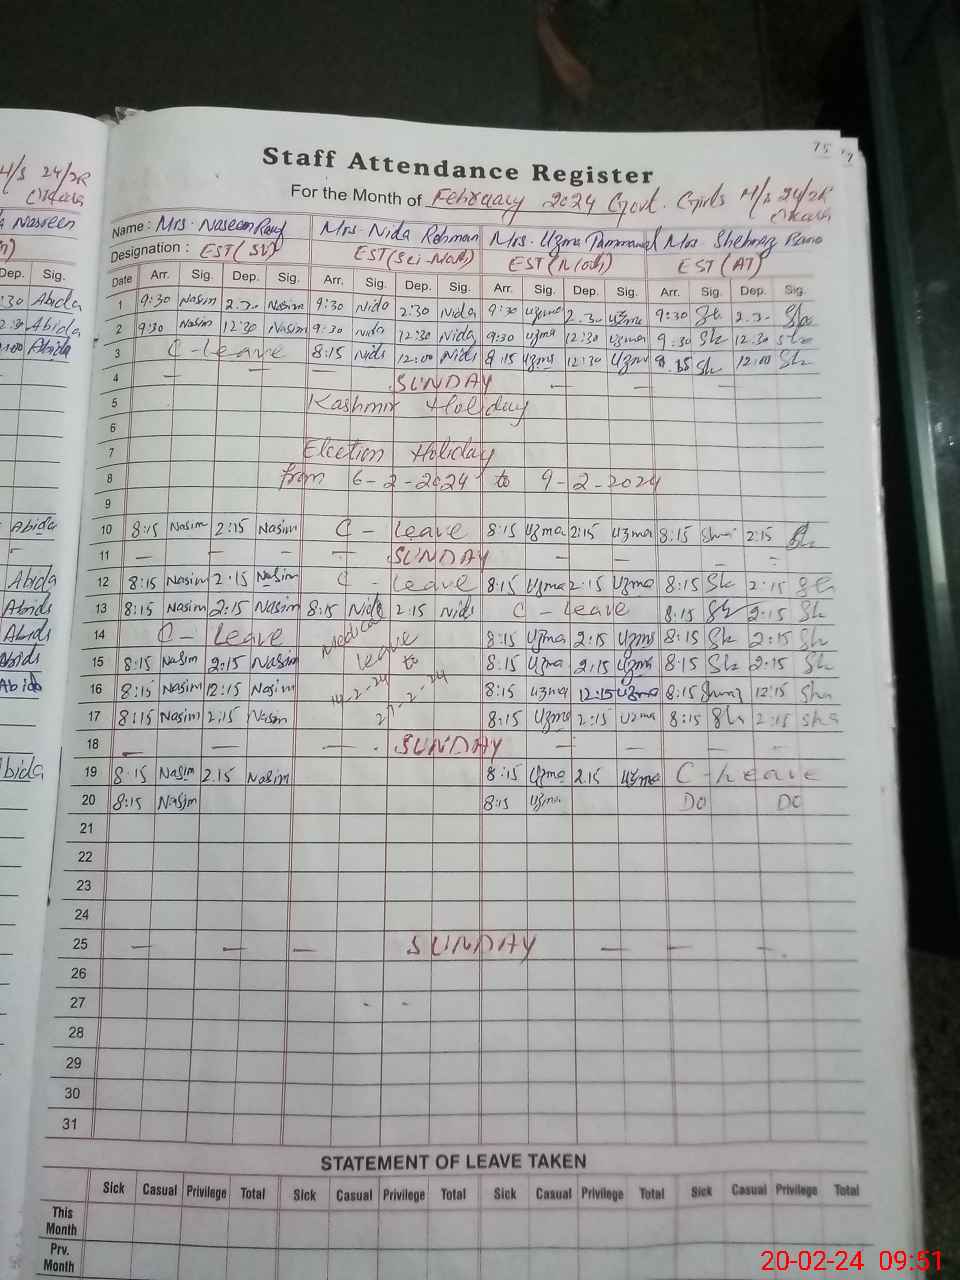 75
Staff Attendance Register
For the Month of February 2024 Govt. Girls M/s 24/2R
Name : Mrs. Naseem Mrs. Nida Rehman Mrs. Uzma Mrs. Shehnaz Bano
Designation : EST(SV) EST(Sci-Math) EST EST(AT)
Date Arr. Sig. Dep. Sig. Arr. Sig. Dep. Sig. Arr. Sig. Dep. Sig. Arr. Sig. Dep. Sig.
1 9:30 Nasim 2.30 Nasim 9:30 Nida 2:30 Nida 9:30 Uzma 2.30 Uzma 9:30 Sh 2.30 Sha
2 9:30 Nasim 12:30 Nasim 9:30 Nida 12:30 Nida 9:30 Uzma 12:30 Uzma 9:30 Sh 12.30 Sh
3 C-Leave 8:15 Nida 12:00 Nida 8:15 Uzma 12:30 Uzma 8:15 Sh 12:00 Sh
4 — — — SUNDAY — — —
5 Kashmir Holiday
6
7 Election Holiday
8 from 6-2-2024 to 9-2-2024
9
10 8:15 Nasim 2:15 Nasim C - Leave 8:15 Uzma 2:15 Uzma 8:15 Sha 2:15 Sh
11 — — — — SUNDAY — — — —
12 8:15 Nasim 2.15 Nasim C - Leave 8:15 Uzma 2:15 Uzma 8:15 Sh 2:15 Sh
13 8:15 Nasim 2:15 Nasim 8:15 Nida 2:15 Nida C - Leave 8:15 Sh 2:15 Sh
14 C- Leave Medical 8:15 Uzma 2:15 Uzma 8:15 Sh 2:15 Sh
15 8:15 Nasim 2:15 Nasim Leave to 8:15 Uzma 2:15 Uzma 8:15 Sh 2:15 Sh
16 8:15 Nasim 12:15 Nasim 14-2-24 8:15 Uzma 12:15 Uzma 8:15 12:15 Sha
17 8:15 Nasim 2:15 Nasim 27-2-24 8:15 Uzma 2:15 Uzma 8:15 Sh 2:15 Sha
18 — — — SUNDAY — — — —
19 8.15 Nasim 2.15 Nasim 8:15 Uzma 2.15 Uzma C-Leave
20 8:15 Nasim 8:15 Uzma DO DO
21
22
23
24
25 — — — SUNDAY — — —
26
27 - -
28
29
30
31
STATEMENT OF LEAVE TAKEN
Sick Casual Privilege Total Sick Casual Privilege Total Sick Casual Privilege Total Sick Casual Privilege Total
This Month
Prv. Month
20-02-24 09:51
M/s 24/2R
Nasreen
Dep. Sig.
:30 Abida
2:30 Abida
:00 Abida
Abida
Abida
Abida
Abida
Abida
Abida
Abida